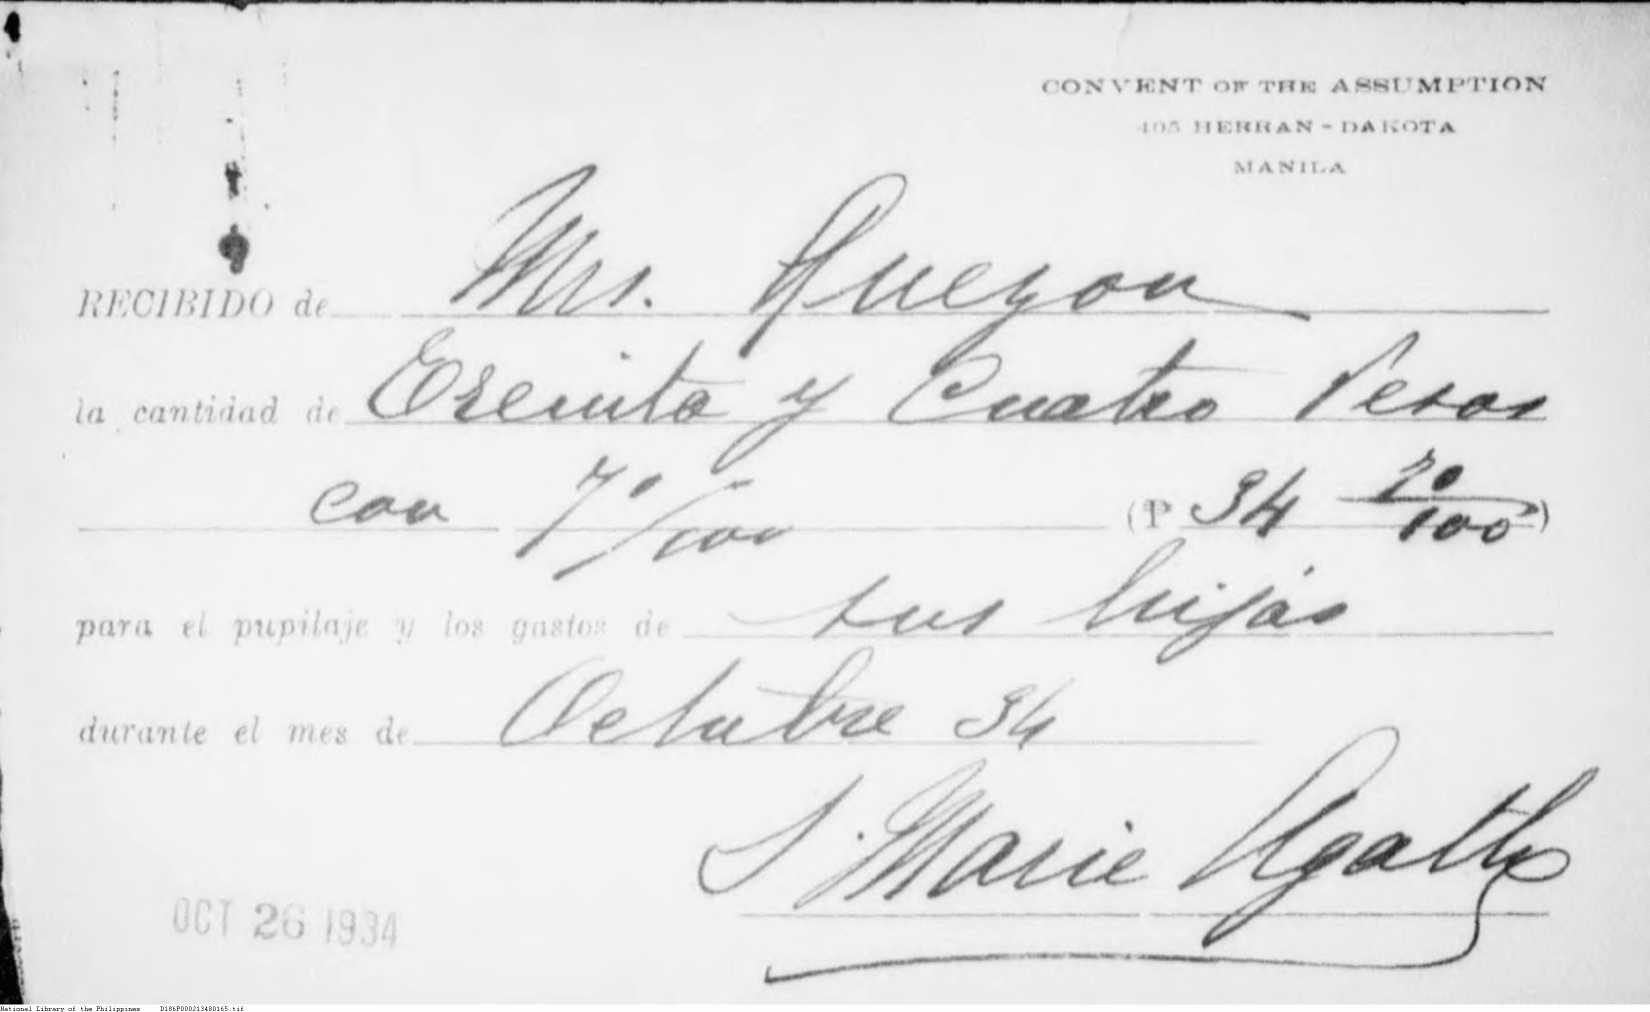 CONVENT OF THE ASSUMPTION
405 HERRAN - DAKOTA
MANILA
RECIBIDO de Mrs. Quezon
la cantidad de Treinta y Cuatro Pesos
con 70/100 (P 34 70/100)
para el pupilaje y los gastos de sus hijas
durante el mes de Octubre 34
S. Marie Agathe
OCT 26 1934
National Library of the Philippines D186P000213480165.tif